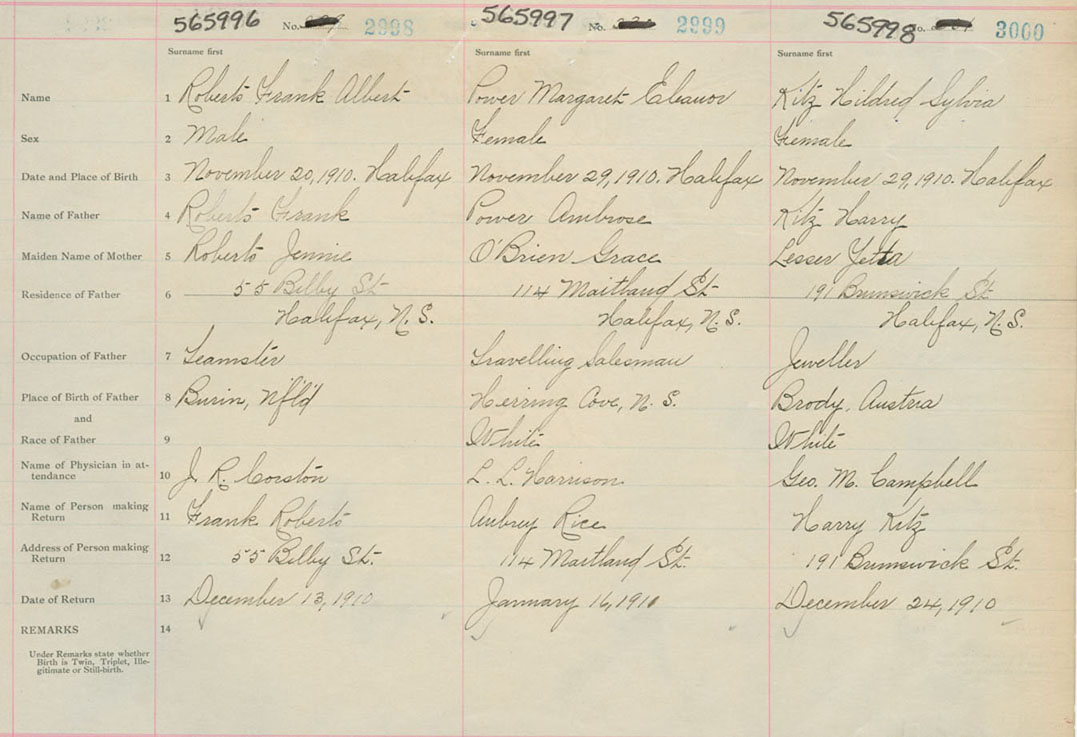 565996 No. 2998 565997 No. 2999 565998 No. 3000
Surname first Surname first Surname first
Name 1 Roberts Frank Albert Power Margaret Eleanor Kitz Hildred Sylvia
Sex 2 Male Female Female
Date and Place of Birth 3 November 20, 1910. Halifax November 29, 1910. Halifax November 29, 1910. Halifax
Name of Father 4 Roberts Frank Power Ambrose Kitz Harry
Maiden Name of Mother 5 Roberts Jennie O'Brien Grace Lesser Yetta
Residence of Father 6 55 Bilby St 114 Maitland St 191 Brunswick St
Halifax, N.S. Halifax, N.S. Halifax, N.S.
Occupation of Father 7 Teamster Travelling Salesman Jeweller
Place of Birth of Father 8 Burin, Nf'l'd Herring Cove, N.S. Brody, Austria
and
Race of Father 9 White White
Name of Physician in at-
tendance 10 J. R. Corston L. L. Harrison Geo. M. Campbell
Name of Person making
Return 11 Frank Roberts Aubrey Rice Harry Kitz
Address of Person making
Return 12 55 Bilby St. 114 Maitland St. 191 Brunswick St.
Date of Return 13 December 13, 1910 January 16, 1911 December 24, 1910
REMARKS 14
Under Remarks state whether
Birth is Twin, Triplet, Ille-
gitimate or Still-birth.